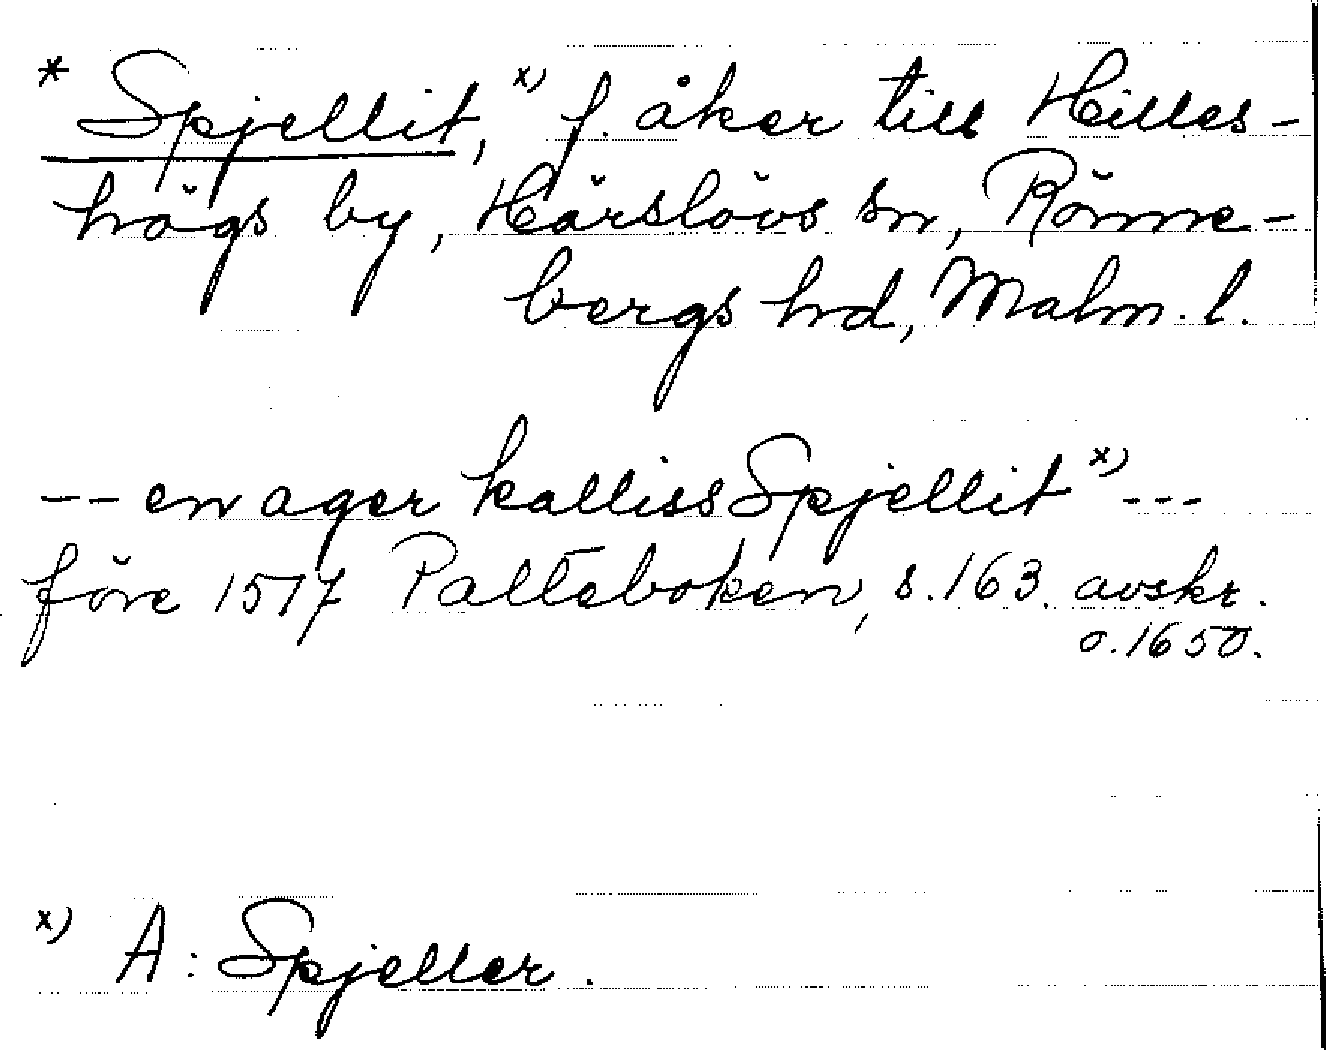 * Spjellit,ˣ⁾ f. åker till Hilles-
högs by, Härslövs sn, Rönne-
bergs hd, Malm. l.
-- en ager kalliss Spjellitˣ⁾ ---
före 1517 Palteboken, s. 163. avskr.
o. 1650.
ˣ⁾ A: Spjeller.